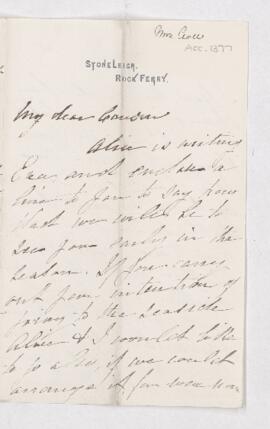 Mrs Croll
Acc. 1377
STONELEIGH,
ROCK FERRY.
My dear Cousin
Alice is writing
Eva and encloses a
line to you to say how
glad we will be to
see you early in the
season. If you carry
out your intention of
going to the seaside
Alice & I would like
to go also, if we could
arrange it